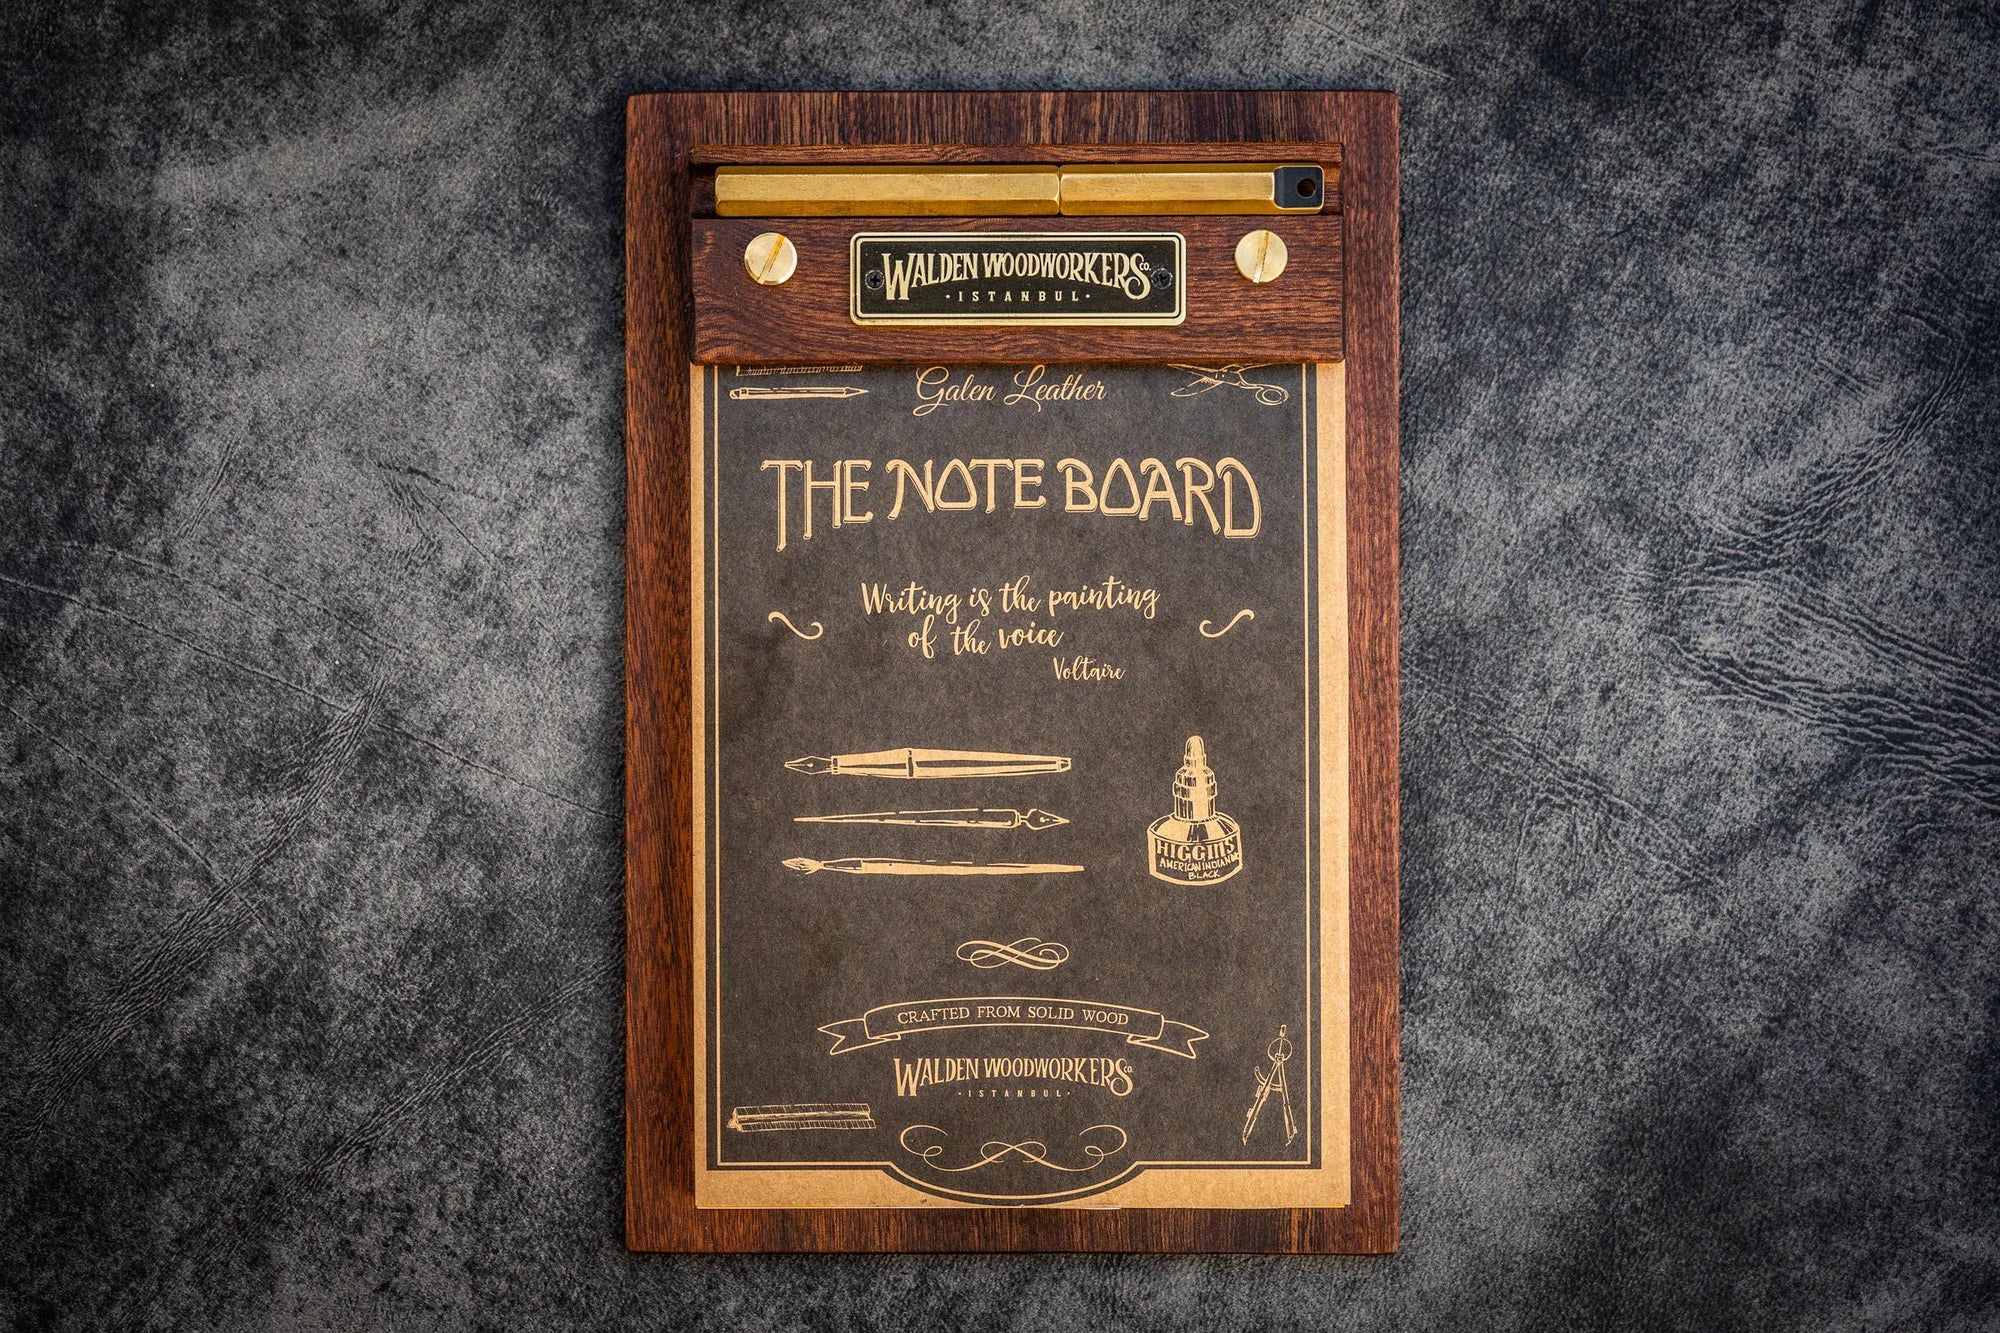 WALDEN WOODWORKERS CO.
· ISTANBUL ·
Galen Leather
THE NOTE BOARD
Writing is the painting
of the voice
Voltaire
HIGGINS
AMERICAN INDIAN INK
BLACK
CRAFTED FROM SOLID WOOD
WALDEN WOODWORKERS CO.
· ISTANBUL ·